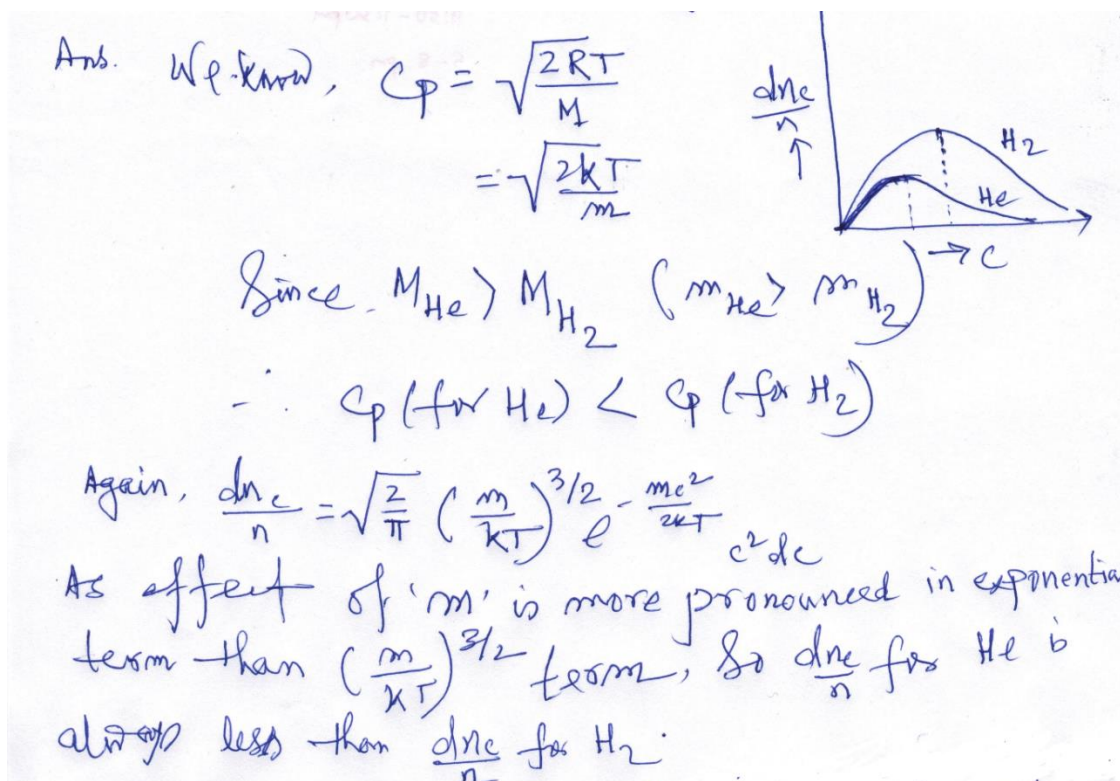 Ans. We know, Cp = √(2RT/M)
= √(2kT/m)
dnc/n ↑
H2
He
→ C
Since M_He > M_H2 (m_He > m_H2)
∴ Cp (for He) < Cp (for H2)
Again, dnc/n = √(2/π) (m/kT)^3/2 e^-mc²/2kT c² dc
As effect of 'm' is more pronounced in exponentia
term than (m/kT)^3/2 term, So dnc/n for He is
always less than dnc/n for H2.